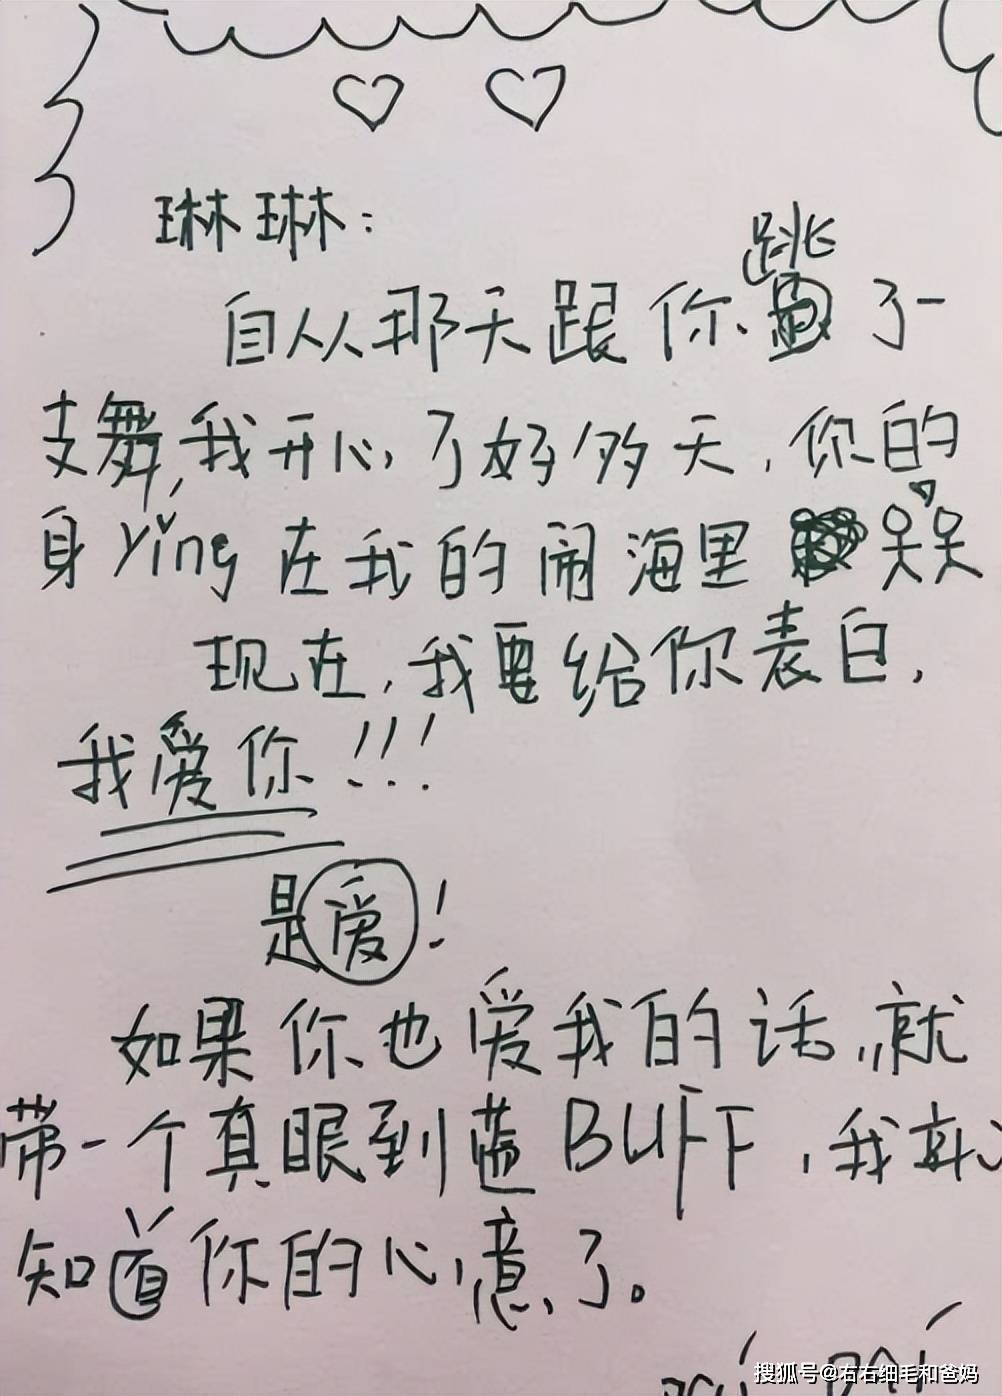 琳琳:
自从那天跟你跳了一
支舞,我开心了好多天,你的
身yǐng在我的闹海里
现在,我要给你表白,
我爱你!!!
是爱!
如果你也爱我的话,就
带一个真眼到蓝BUFF,我就
知道你的心意了。
搜狐号@右右细毛和爸妈